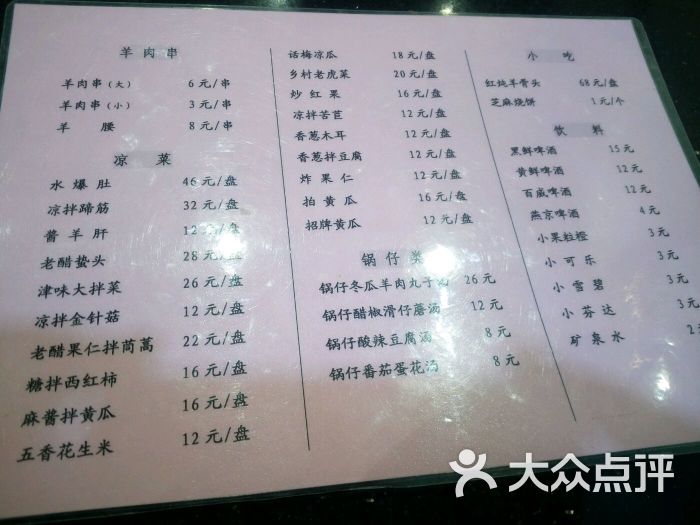 羊肉串
羊肉串（大） 6 元/串
羊肉串（小） 3 元/串
羊 腰 8 元/串
凉 菜
水 爆 肚 46 元/盘
凉拌蹄筋 32 元/盘
酱 羊 肝 12 元/盘
老醋蛰头 28 元/盘
津味大拌菜 26 元/盘
凉拌金针菇 12 元/盘
老醋果仁拌茼蒿 22 元/盘
糖拌西红柿 16 元/盘
麻酱拌黄瓜 16 元/盘
五香花生米 12 元/盘
话梅凉瓜 18 元/盘
乡村老虎菜 20 元/盘
炒 红 果 16 元/盘
凉拌苦苣 12 元/盘
香葱木耳 12 元/盘
香葱拌豆腐 12 元/盘
炸 果 仁 12 元/盘
拍 黄 瓜 16 元/盘
招牌黄瓜 12 元/盘
锅 仔 类
锅仔冬瓜羊肉丸子汤 26 元
锅仔醋椒滑仔蘑汤 12 元
锅仔酸辣豆腐汤 8 元
锅仔番茄蛋花汤 8 元
小 吃
红炖羊骨头 68元/盘
芝麻烧饼 1元/个
饮 料
黑鲜啤酒 15元
黄鲜啤酒 12元
百威啤酒 12元
燕京啤酒 4元
小果粒橙 3元
小 可 乐 3元
小 雪 碧 3元
小 芬 达 3元
矿 泉 水 2
大众点评